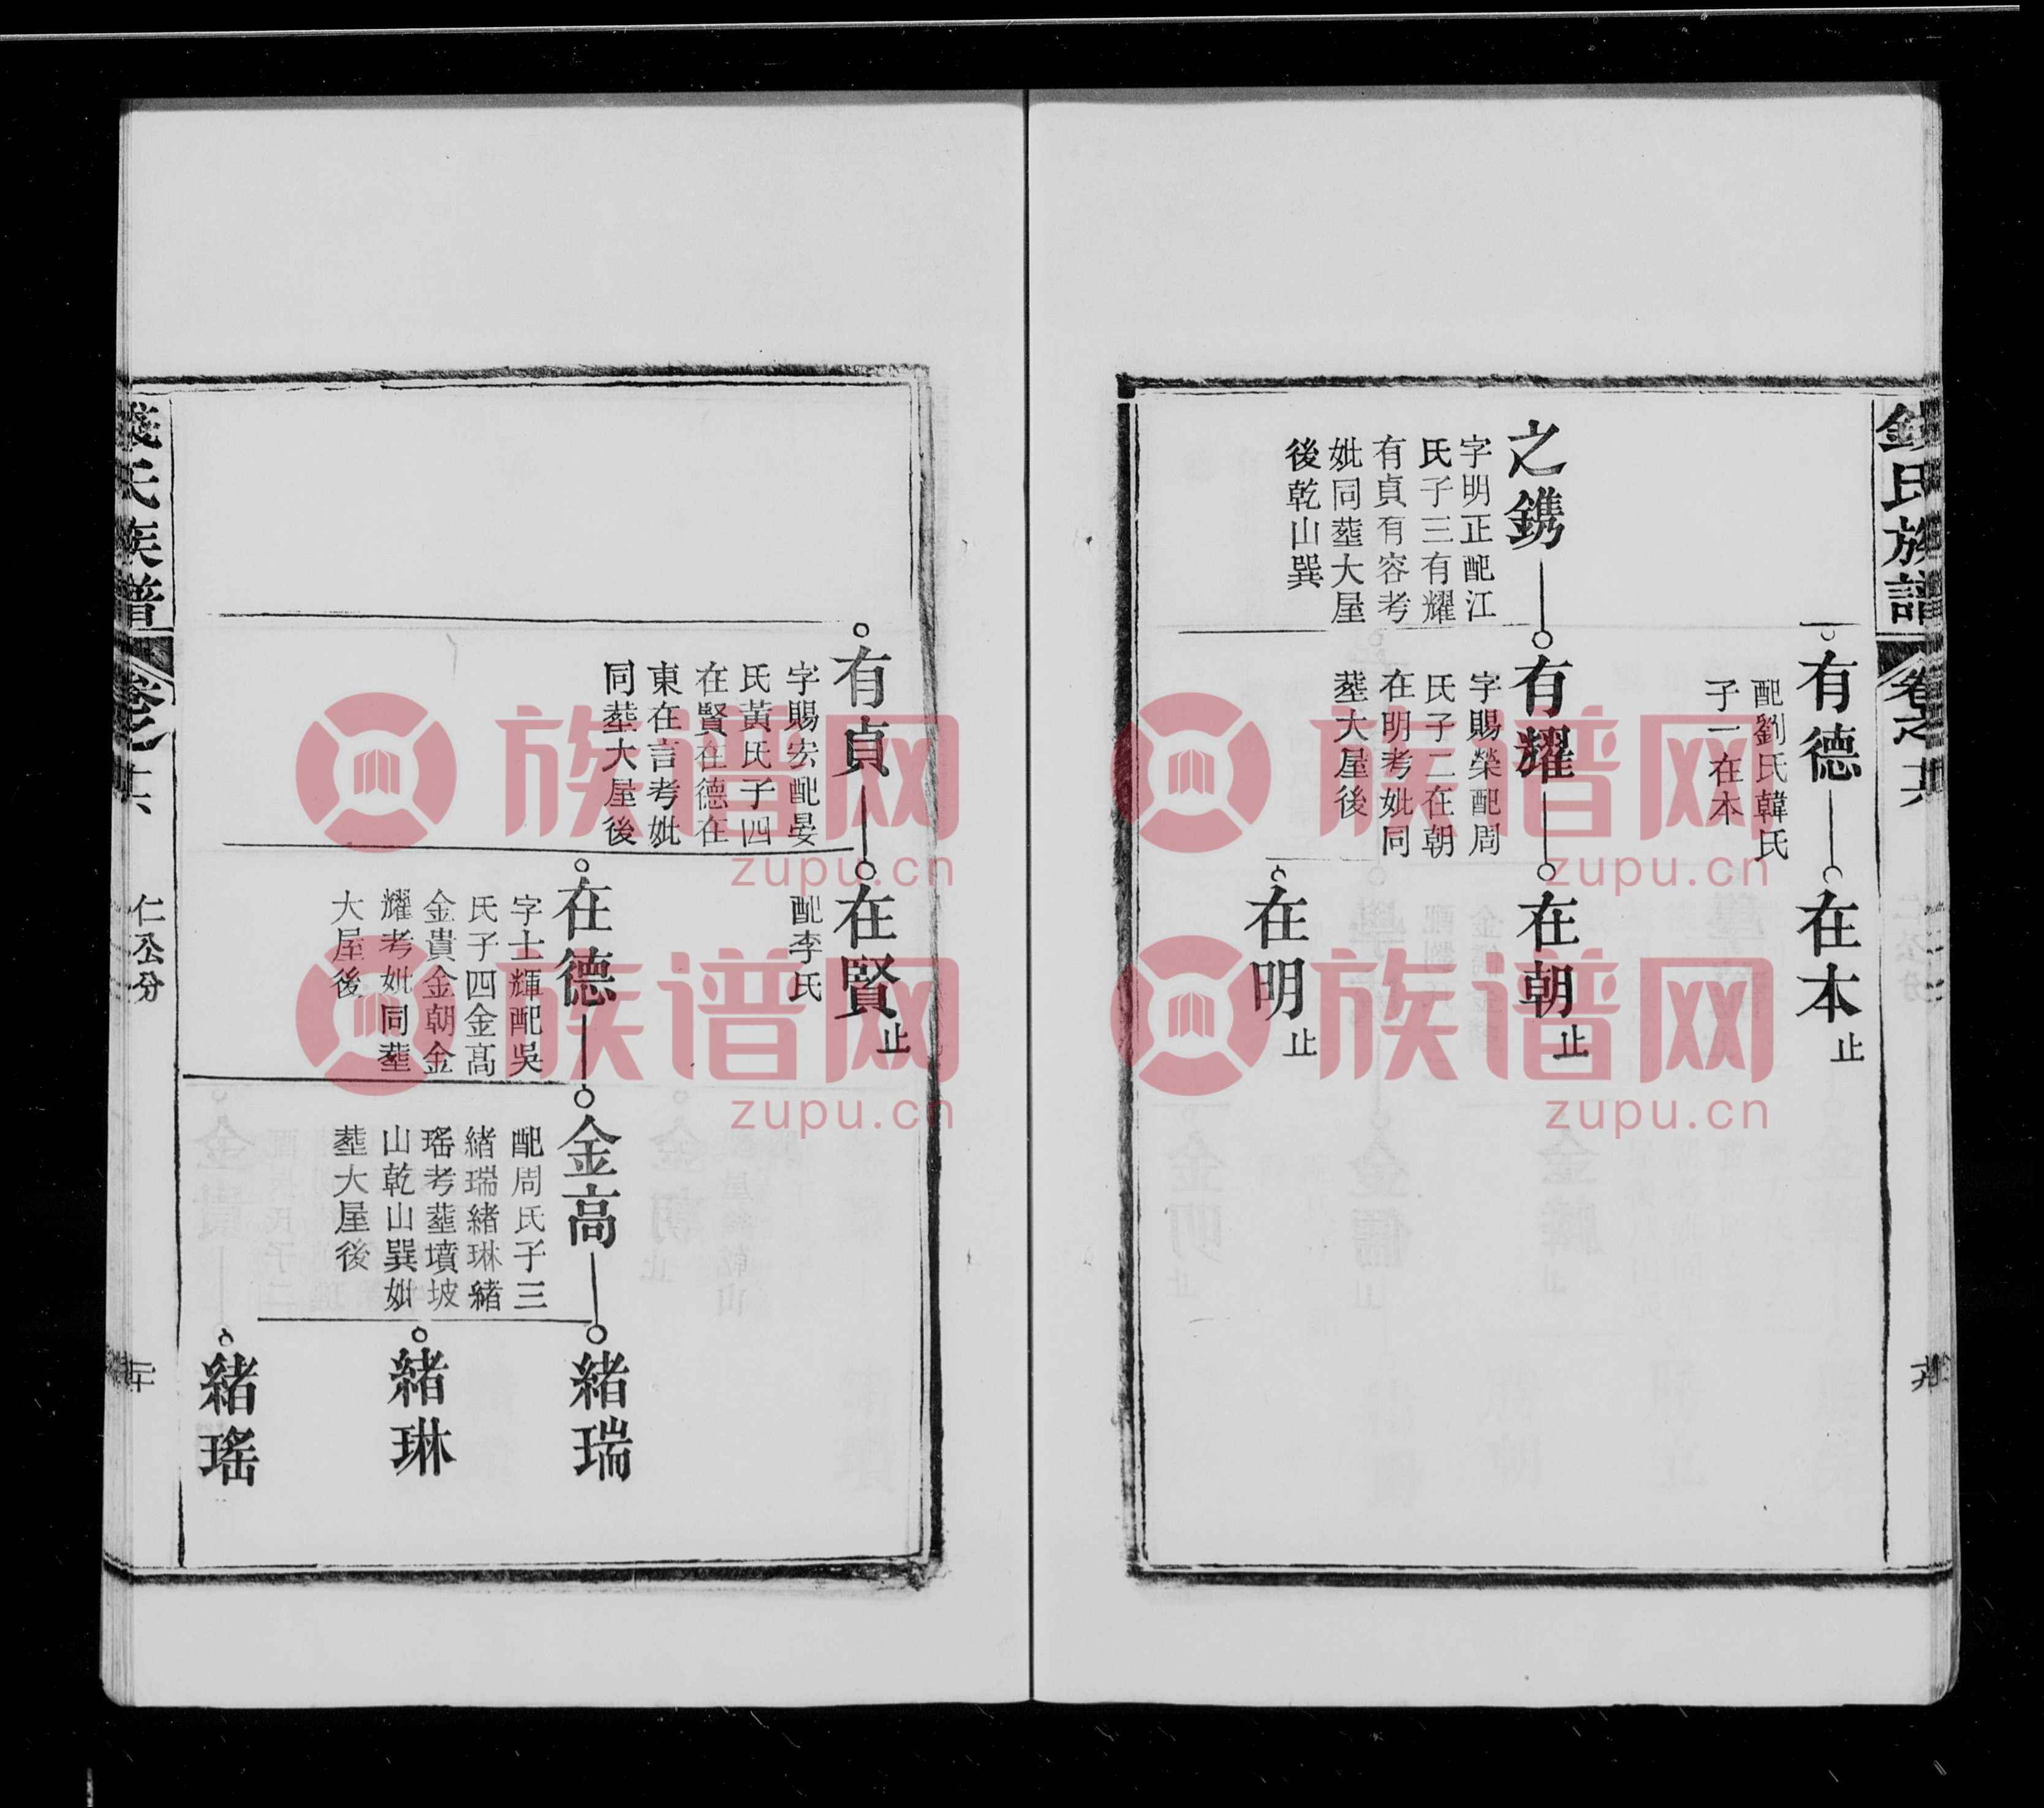 錢氏族譜
卷之十六
十九
有德
配劉氏韓氏
子一在本
在本止
之鐫
字明正配江
氏子三有耀
有貞有容考
妣同塟大屋
後乾山巽
有耀
字賜榮配周
氏子二在朝
在明考妣同
塟大屋後
在朝止
在明止
有貞
字賜宏配晏
氏黃氏子四
在賢在德在
東在言考妣
同塟大屋後
在賢止
配李氏
在德
字士輝配吳
氏子四金高
金貴金朝金
耀考妣同塟
大屋後
金高
配周氏子三
緒瑞緒琳緒
瑤考塟墳坡
山乾山巽妣
塟大屋後
緒瑞
緒琳
緒瑤
錢氏族譜
卷之十六
仁公分
二十
族谱网
zupu.cn
族谱网
zupu.cn
族谱网
zupu.cn
族谱网
zupu.cn